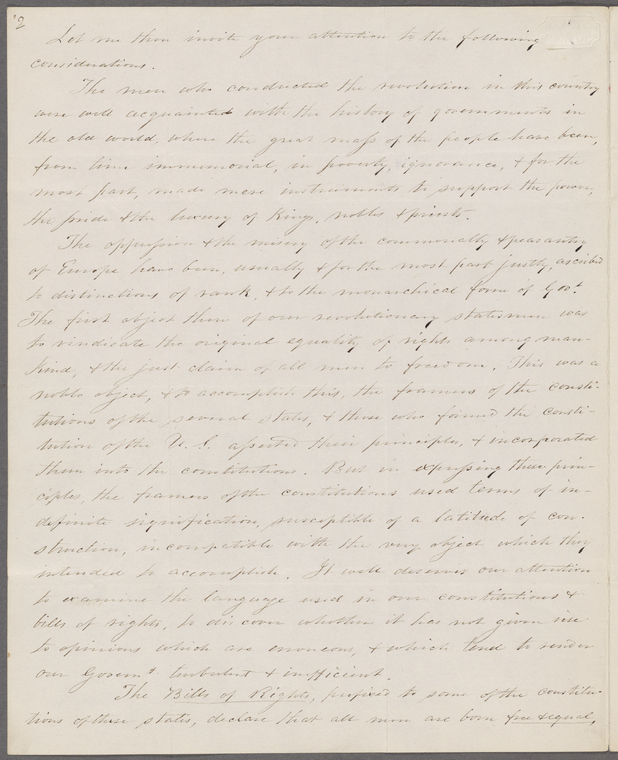 2
Let me then invite your attention to the following
considerations.
The men who conducted the revolution in this country
were well acquainted with the history of governments in
the old world, where the great mass of the people have been,
from time immemorial, in poverty, ignorance, & for the
most part, made mere instruments to support the power,
the pride & the luxury of Kings, nobles & priests.
The oppression & the misery of the commonalty & peasantry
of Europe have been, usually & for the most part justly, ascribed
to distinctions of rank, & to the monarchical form of Govt.
The first object then of our revolutionary statesmen was
to vindicate the original equality of rights among man-
kind, & the just claim of all men to freedom. This was a
noble object, & to accomplish this, the framers of the consti-
tutions of the several states, & those who formed the consti-
tution of the U. S. asserted their principles, & incorporated
them into the constitutions. But in expressing these prin-
ciples, the framers of the constitutions used terms of in-
definite signification, susceptible of a latitude of con-
struction, incompatible with the very object which they
intended to accomplish. It well deserves our attention
to examine the language used in our constitutions &
bills of rights, to discover whether it has not given rise
to opinions which are erroneous, & which tend to render
our Governt. turbulent & inefficient.
The Bills of Rights, prefixed to some of the constitu-
tions of these states, declare that all men are born free & equal,